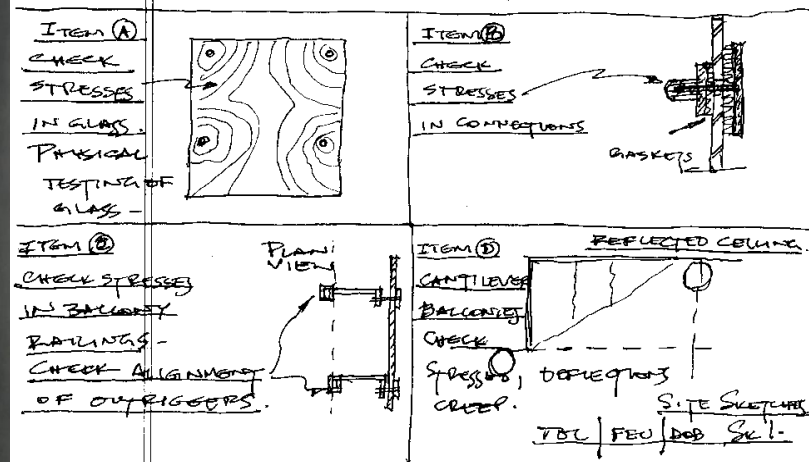 ITEM (A)
CHECK
STRESSES
IN GLASS.
PHYSICAL
TESTING OF
GLASS -
ITEM (B)
CHECK
STRESSES
IN CONNECTIONS
GASKETS
ITEM (C)
CHECK STRESSES
IN BALCONY
RAILINGS -
CHECK ALIGNMENT
OF OUTRIGGERS.
PLAN
VIEW
ITEM (D)
REFLECTED CEILING.
CANTILEVER
BALCONIES
CHECK
STRESSES, DEFLECTIONS
CREEP.
SITE SKETCHES
FEU
SK1-